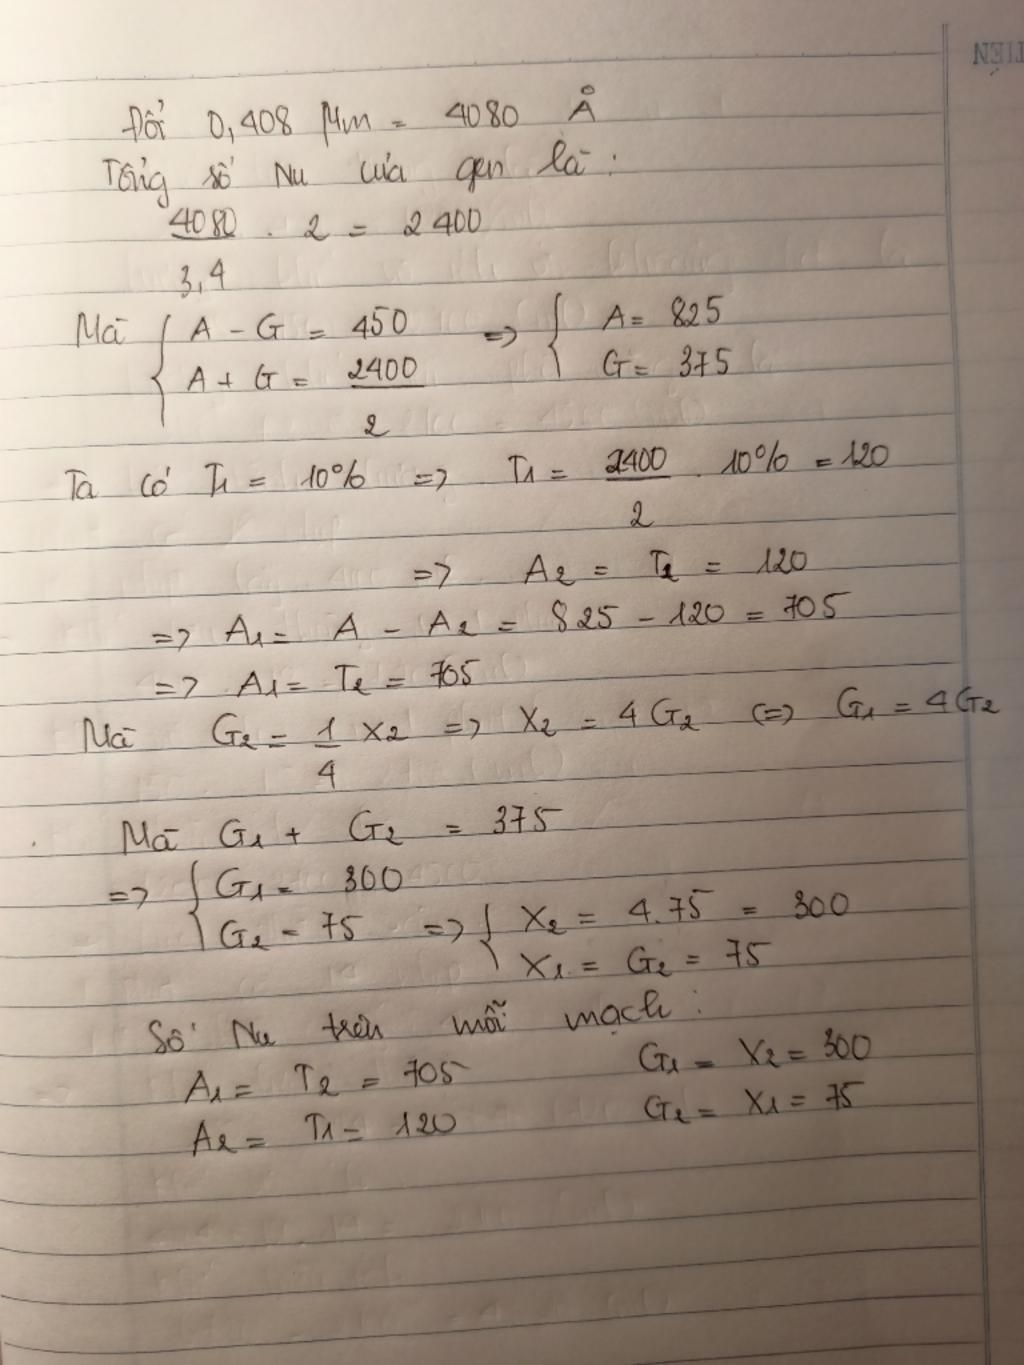 TIỆN
Đổi 0,408 μm = 4080 Å
Tổng số Nu của gen là :
4080/3,4 . 2 = 2400
Mà { A - G = 450 => { A = 825
A + G = 2400/2 G = 375
Ta có T1 = 10% => T1 = 2400/2 . 10% = 120
=> A2 = T2 = 120
=> A1 = A - A2 = 825 - 120 = 705
=> A1 = T2 = 705
Mà G2 = 1/4 X2 => X2 = 4G2 (=) G1 = 4G2
Mà G1 + G2 = 375
=> { G1 = 300
G2 = 75 => { X2 = 4.75 = 300
X1 = G2 = 75
Số Nu trên mỗi mạch :
A1 = T2 = 705 G1 = X2 = 300
A2 = T1 = 120 G2 = X1 = 75